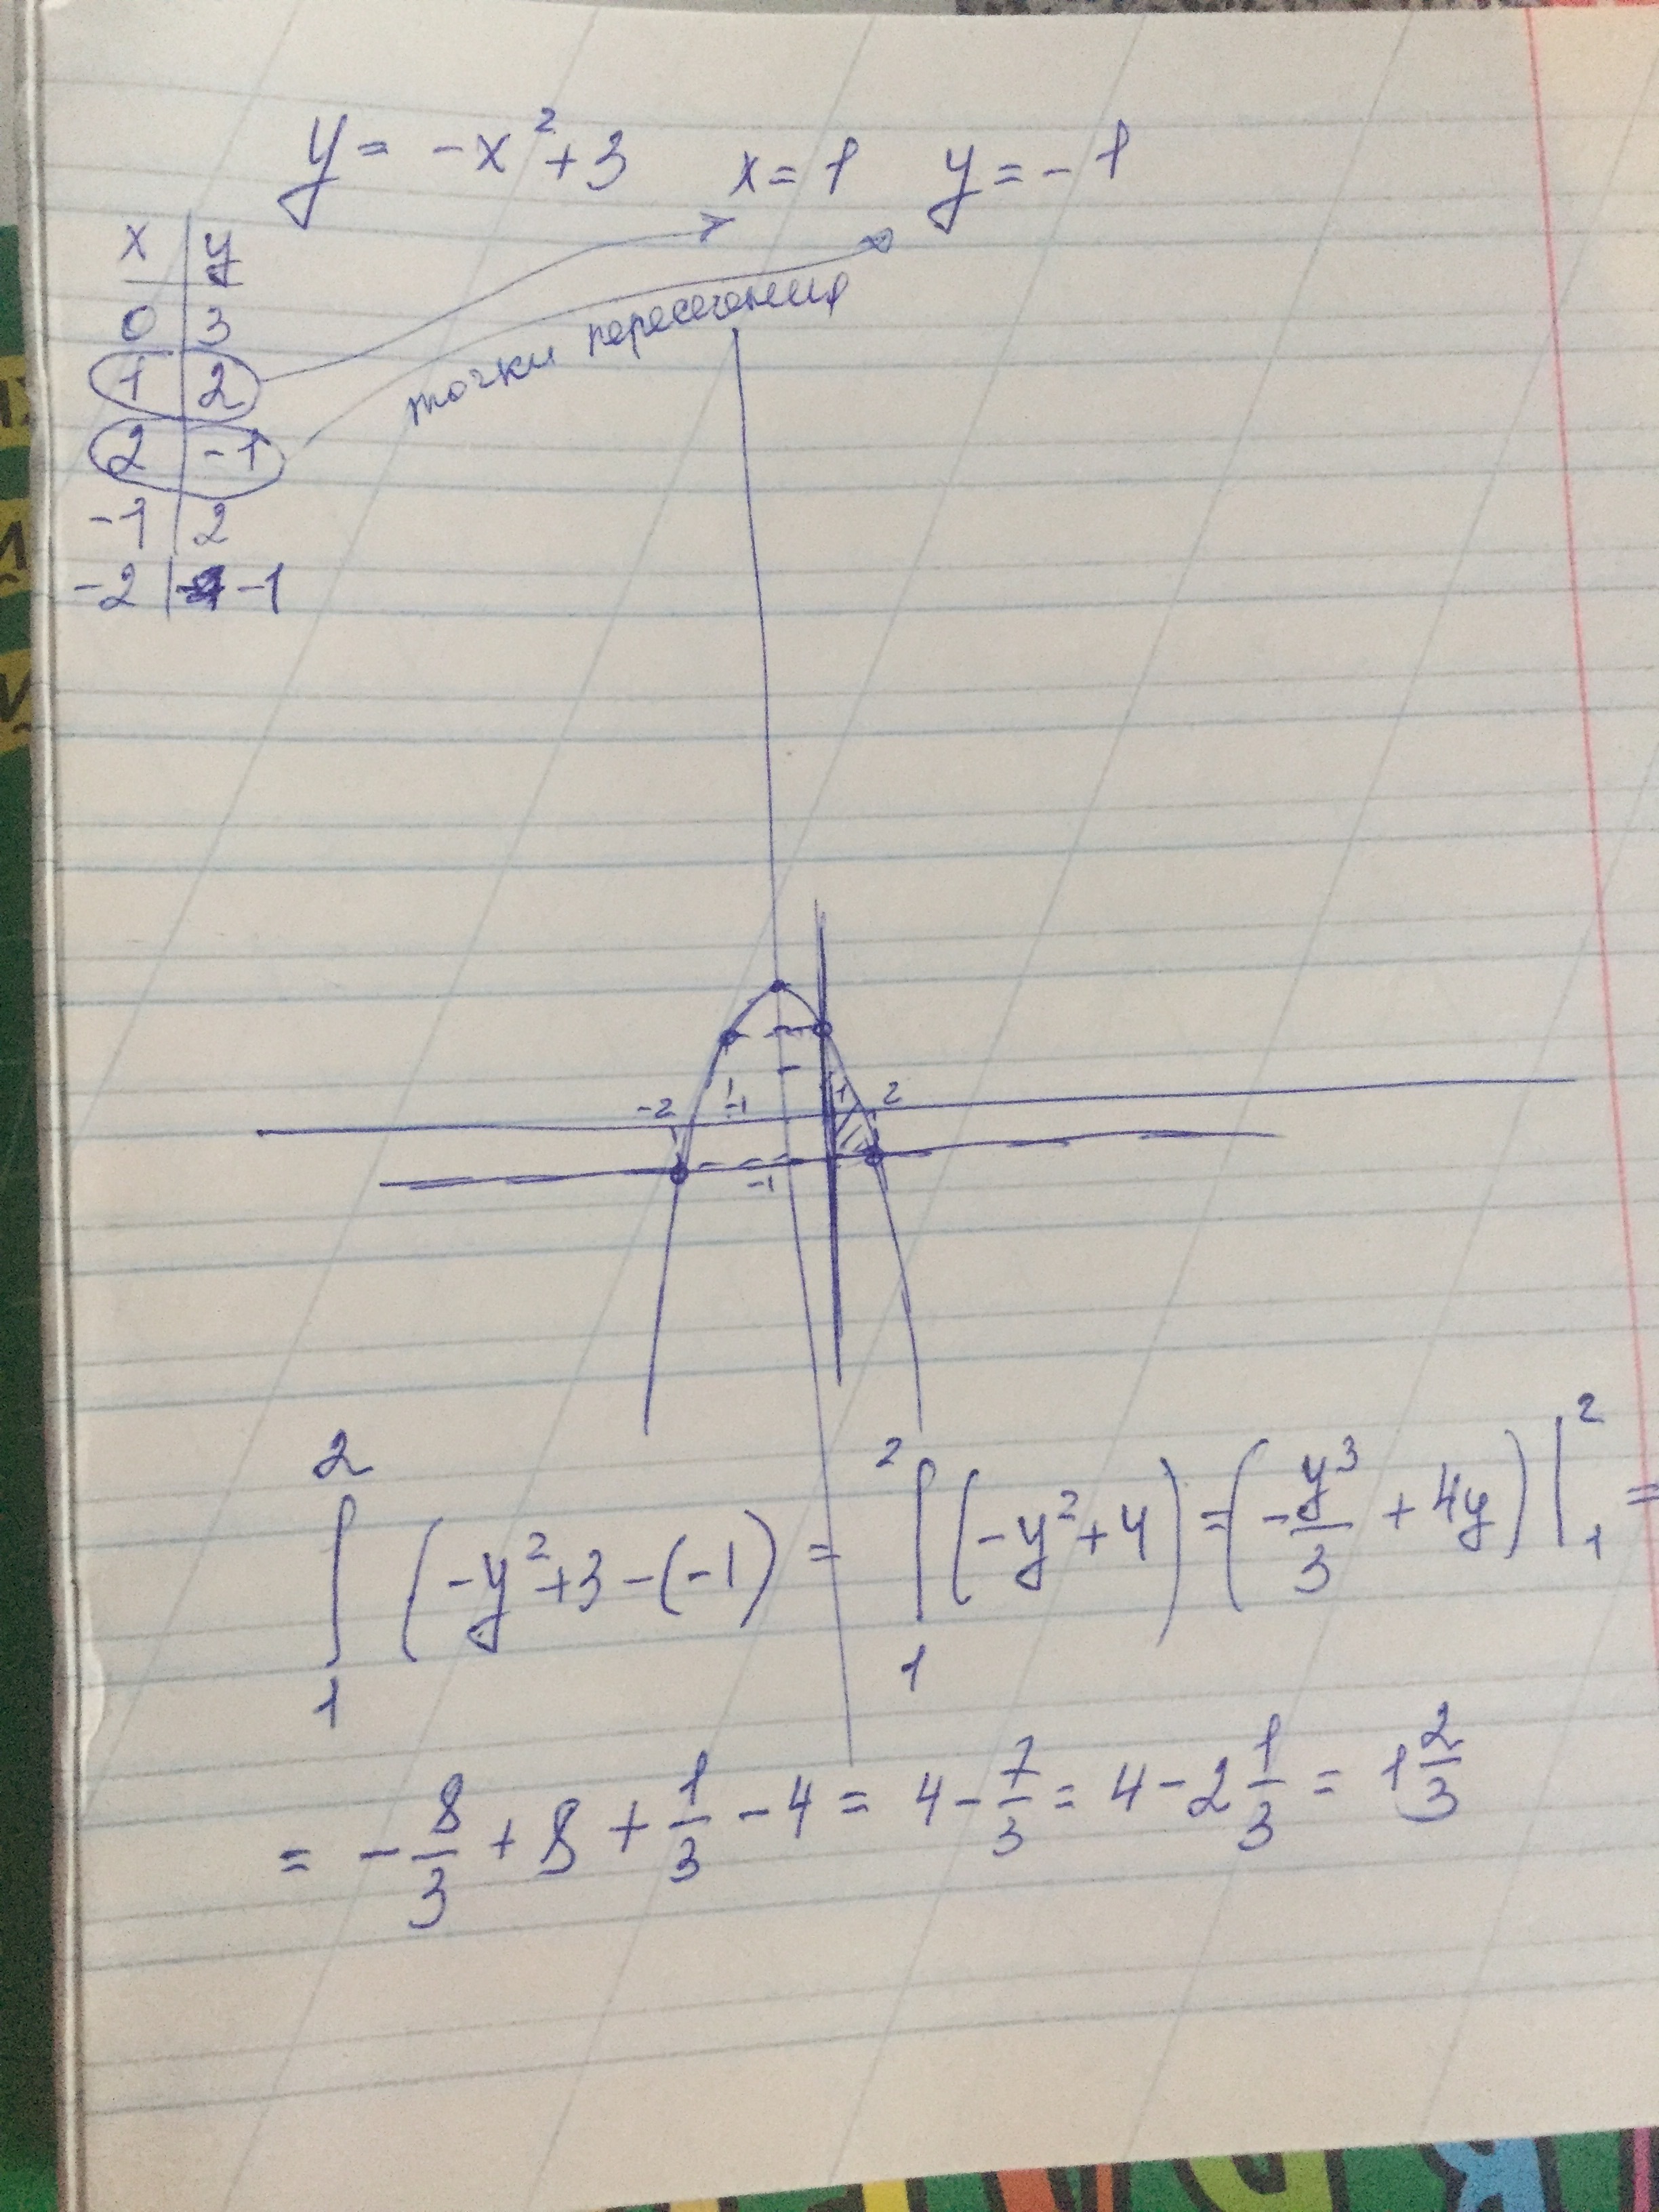 y = -x² + 3 x = 1 y = -1
x | y
0 | 3
1 | 2
2 | -1
-1 | 2
-2 | -1
точки пересечения
-2 -1 1 2
-1
∫₁² (-y² + 3 - (-1)) = ∫₁² (-y² + 4) = (-y³/3 + 4y)|₁² =
= -8/3 + 8 + 1/3 - 4 = 4 - 7/3 = 4 - 2 1/3 = 1 2/3